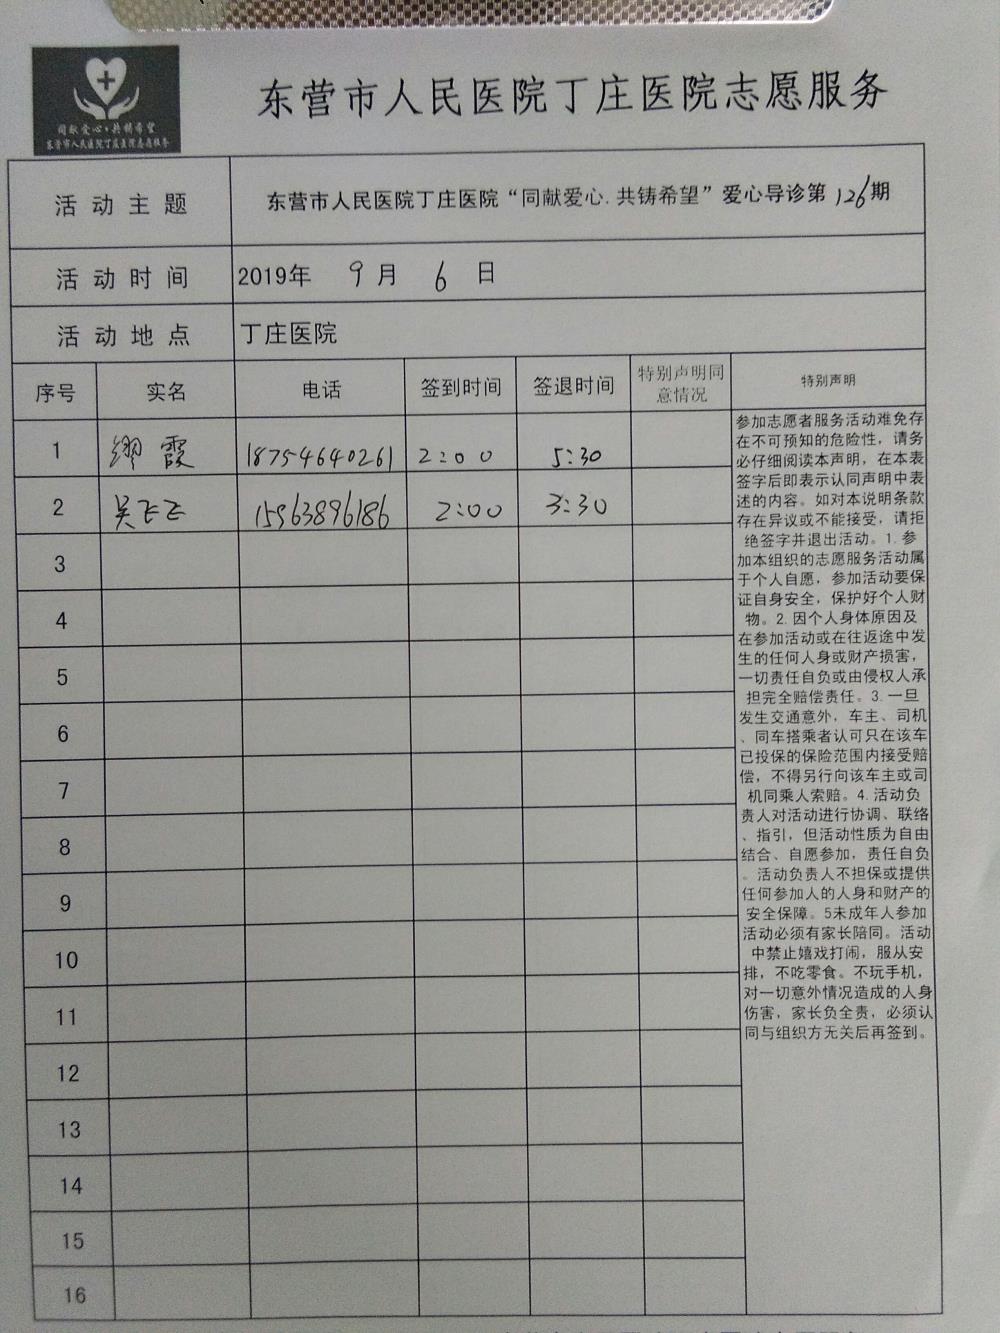 同献爱心·共铸希望
东营市人民医院丁庄医院志愿服务
东营市人民医院丁庄医院志愿服务
活动主题 东营市人民医院丁庄医院“同献爱心.共铸希望”爱心导诊第126期
活动时间 2019年 9月 6日
活动地点 丁庄医院
序号 实名 电话 签到时间 签退时间 特别声明同意情况 特别声明
1 缪霞 18754640261 2:00 5:30
2 吴飞飞 15963896186 2:00 3:30
3
4
5
6
7
8
9
10
11
12
13
14
15
16
参加志愿者服务活动难免存
在不可预知的危险性，请务
必仔细阅读本声明，在本表
签字后即表示认同声明中表
述的内容。如对本说明条款
存在异议或不能接受，请拒
绝签字并退出活动。1.参
加本组织的志愿服务活动属
于个人自愿，参加活动要保
证自身安全，保护好个人财
物。2.因个人身体原因及
在参加活动或在往返途中发
生的任何人身或财产损害，
一切责任自负或由侵权人承
担完全赔偿责任。3.一旦
发生交通意外，车主、司机
、同车搭乘者认可只在该车
已投保的保险范围内接受赔
偿，不得另行向该车主或司
机同乘人索赔。4.活动负
责人对活动进行协调、联络
、指引，但活动性质为自由
结合、自愿参加，责任自负
。活动负责人不担保或提供
任何参加人的人身和财产的
安全保障。5未成年人参加
活动必须有家长陪同。活动
中禁止嬉戏打闹，服从安
排，不吃零食。不玩手机，
对一切意外情况造成的人身
伤害，家长负全责，必须认
同与组织方无关后再签到。